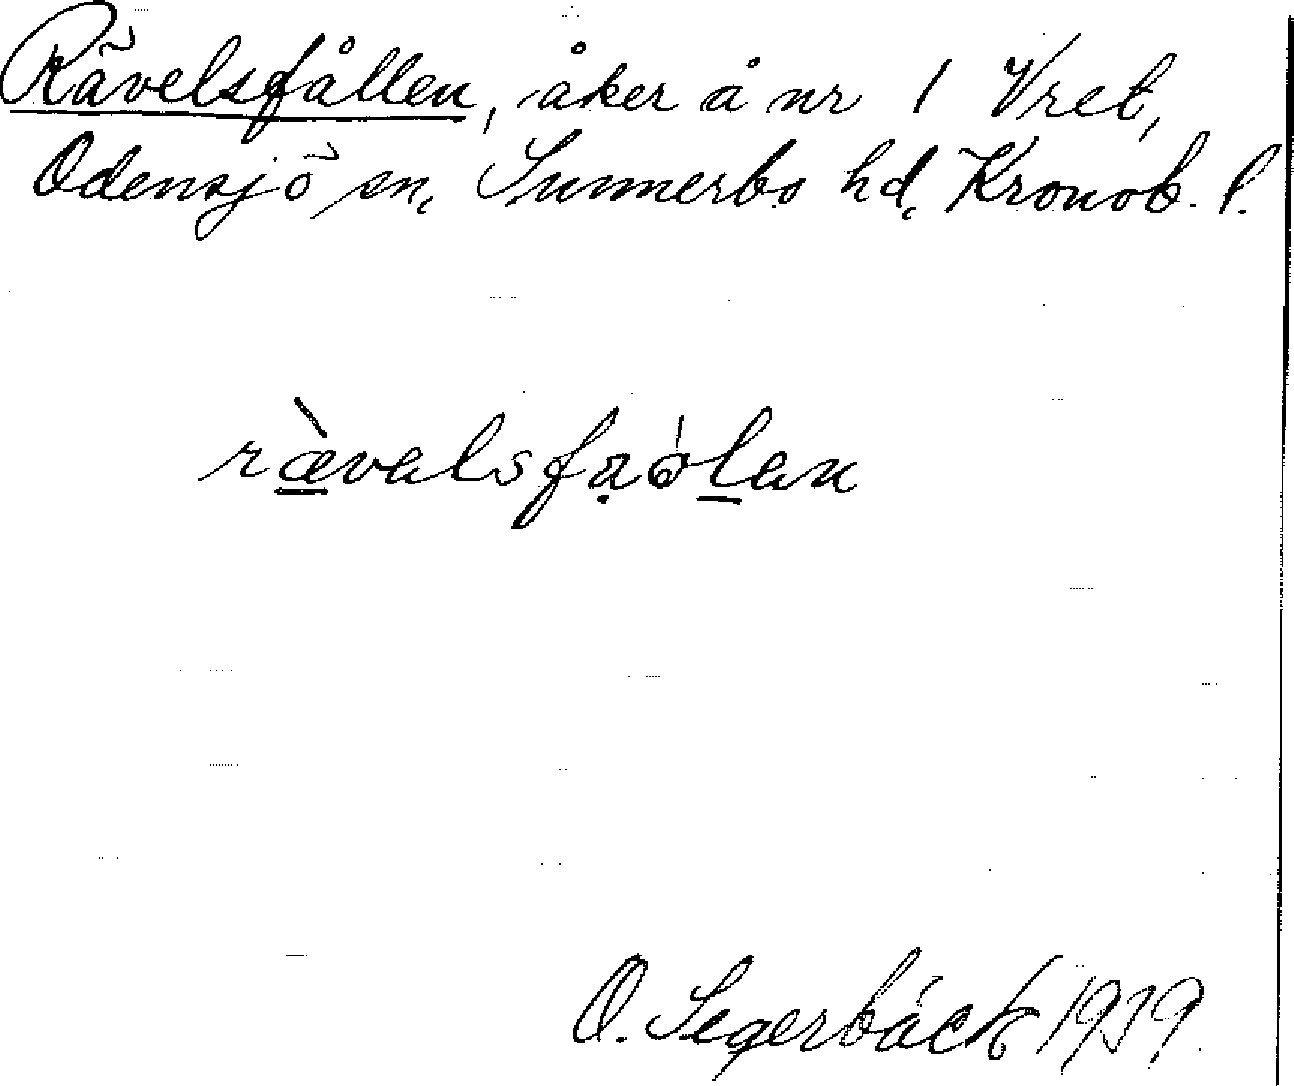 Rävelsfållen, åker å nr 1 Vret,
Odensjö sn, Sunnerbo hd, Kronob. l.
ræ̀valsfaólan
O. Segerbäck 1939